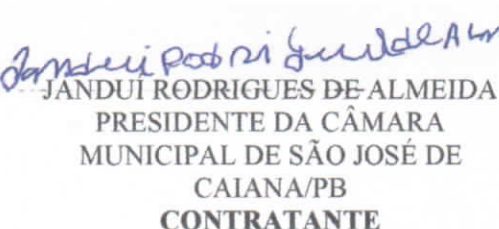 Jandui Rodri
JANDUÍ RODRIGUES DE ALMEIDA
PRESIDENTE DA CÂMARA
MUNICIPAL DE SÃO JOSÉ DE
CAIANA/PB
CONTRATANTE